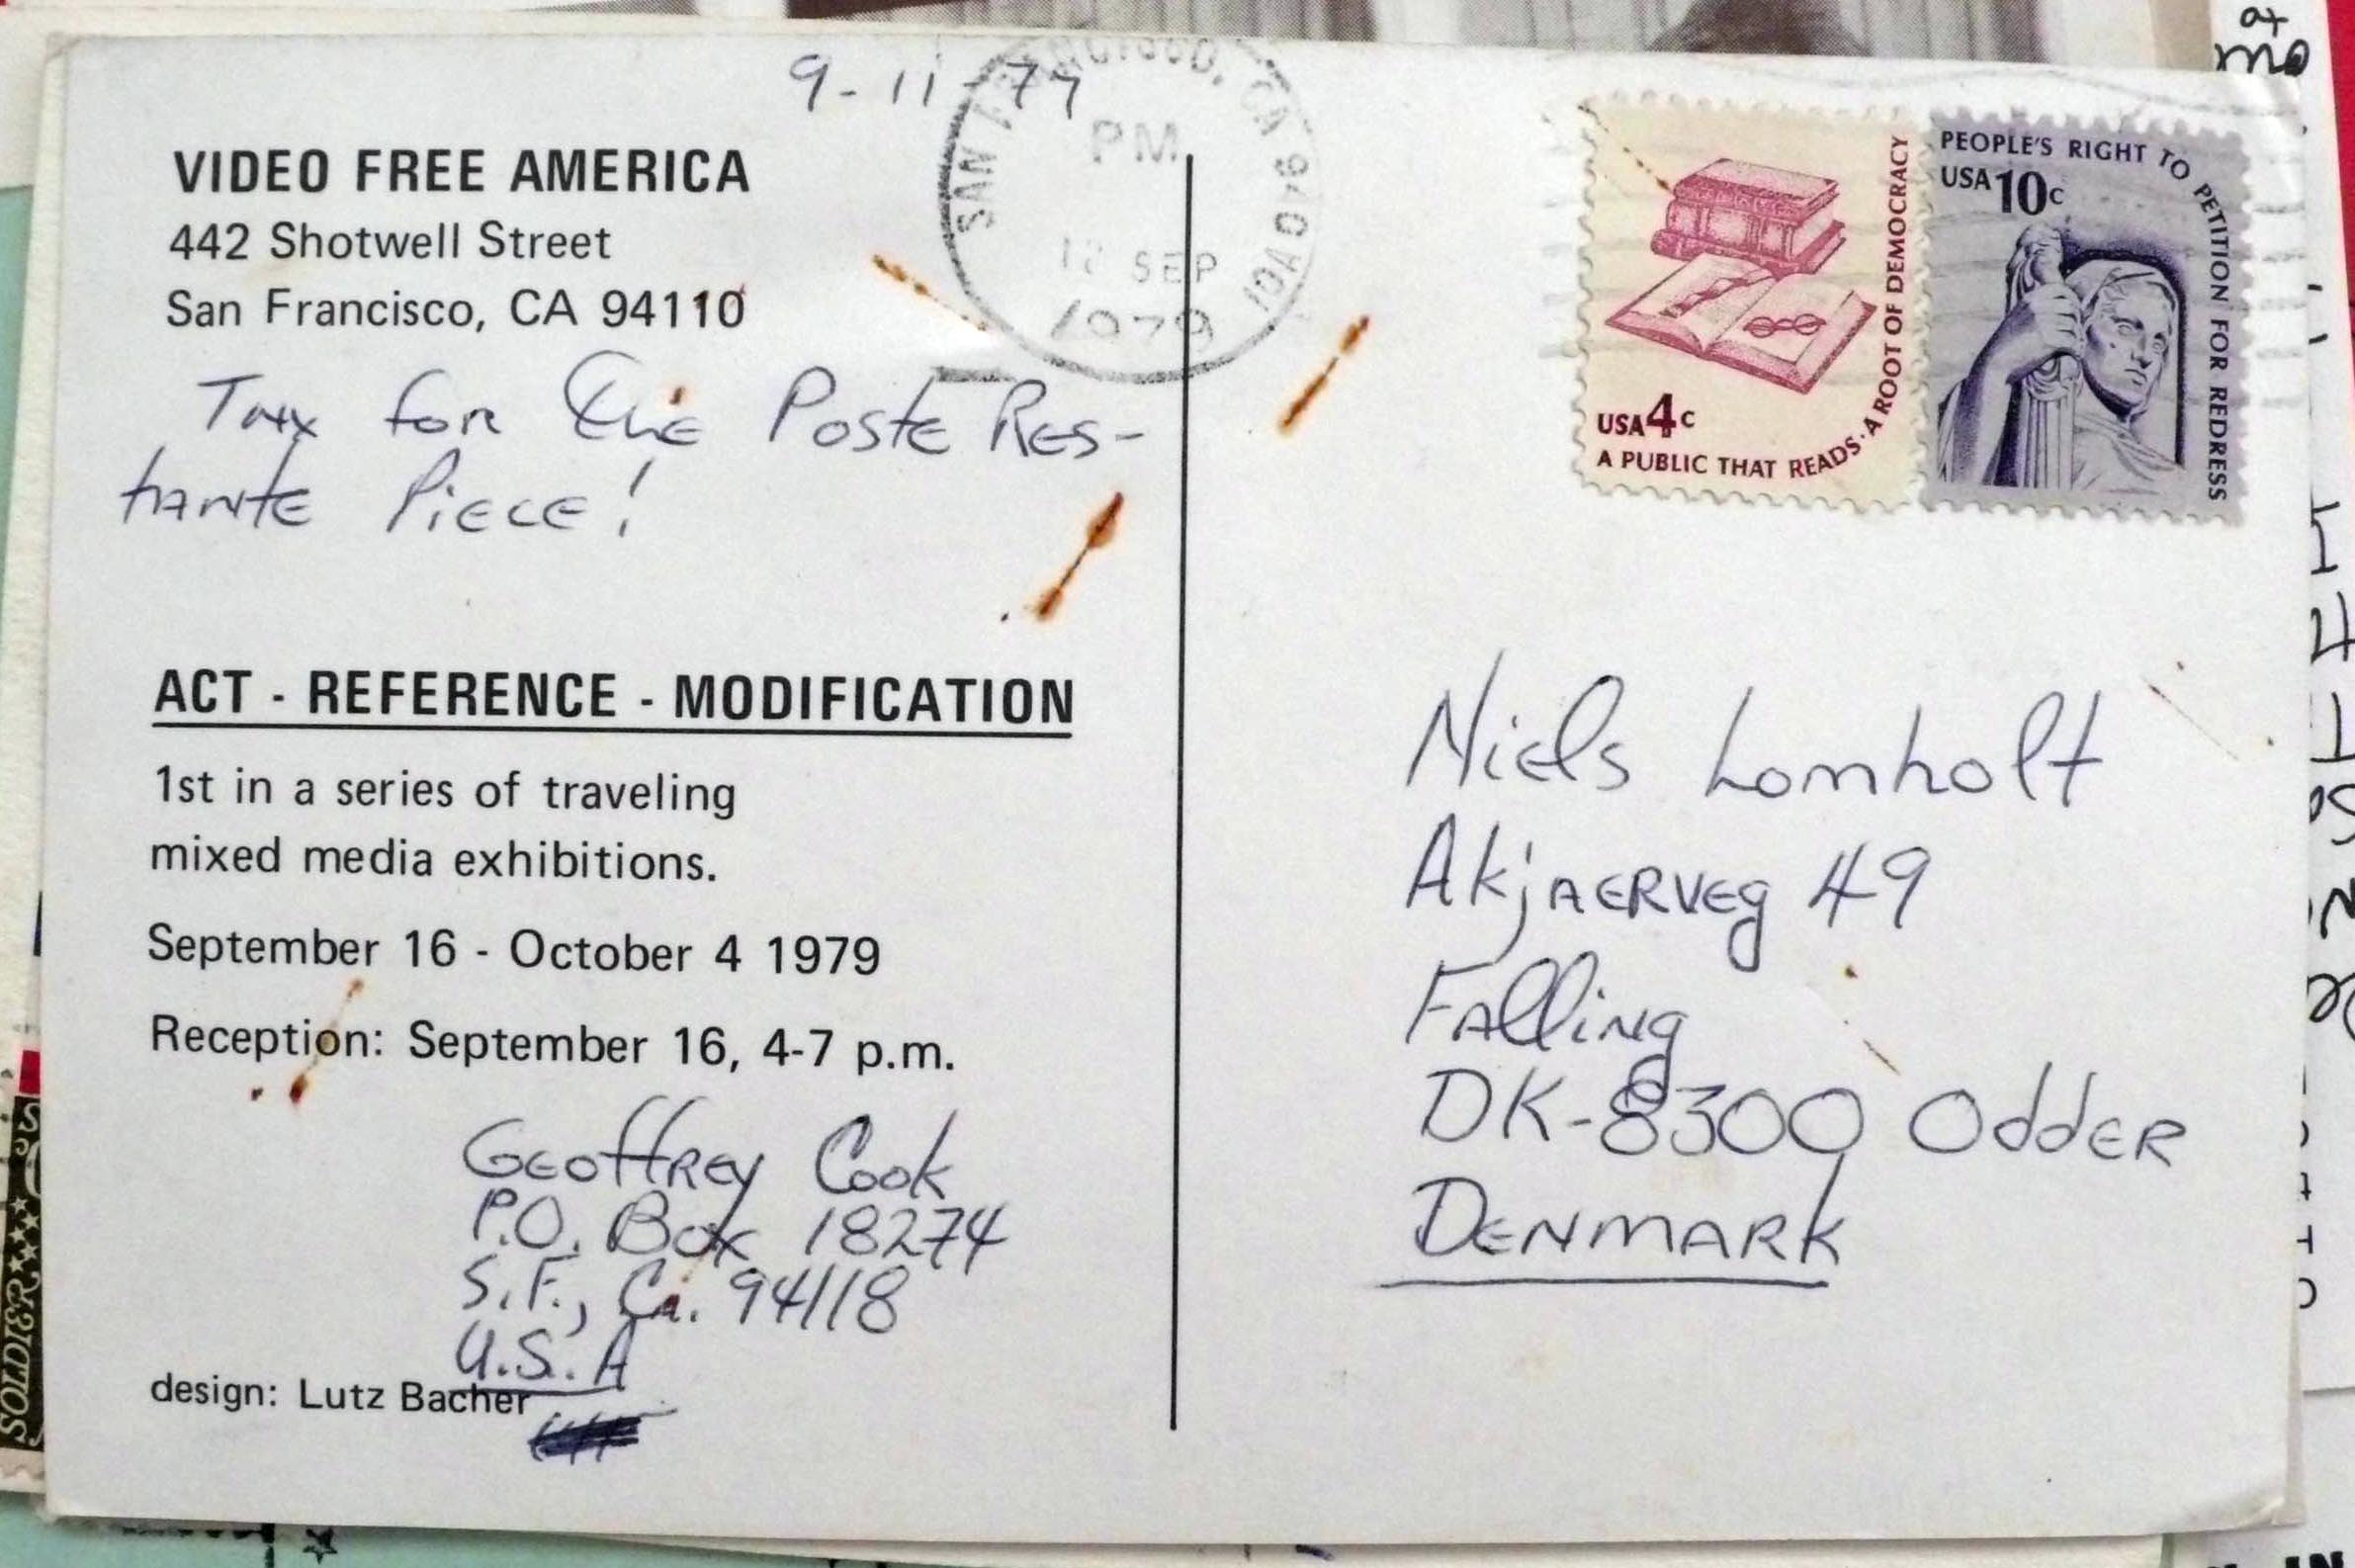 9-11-79
SAN FRANCISCO, CA 940 A0
PM
SEP
1979
VIDEO FREE AMERICA
442 Shotwell Street
San Francisco, CA 94110
for the Poste Res-
tante Piece!
ACT - REFERENCE - MODIFICATION
1st in a series of traveling
mixed media exhibitions.
September 16 - October 4 1979
Reception: September 16, 4-7 p.m.
Geoffrey Cook
P.O. Box 18274
S.F., Ca. 94118
U.S.A
design: Lutz Bacher
USA 4c
A PUBLIC THAT READS·A ROOT OF DEMOCRACY
PEOPLE'S RIGHT TO PETITION FOR REDRESS
USA 10c
Niels Lomholt
Akjaerveg 49
Falling
DK-8300 Odder
DENMARK
at
me
SOLDIER